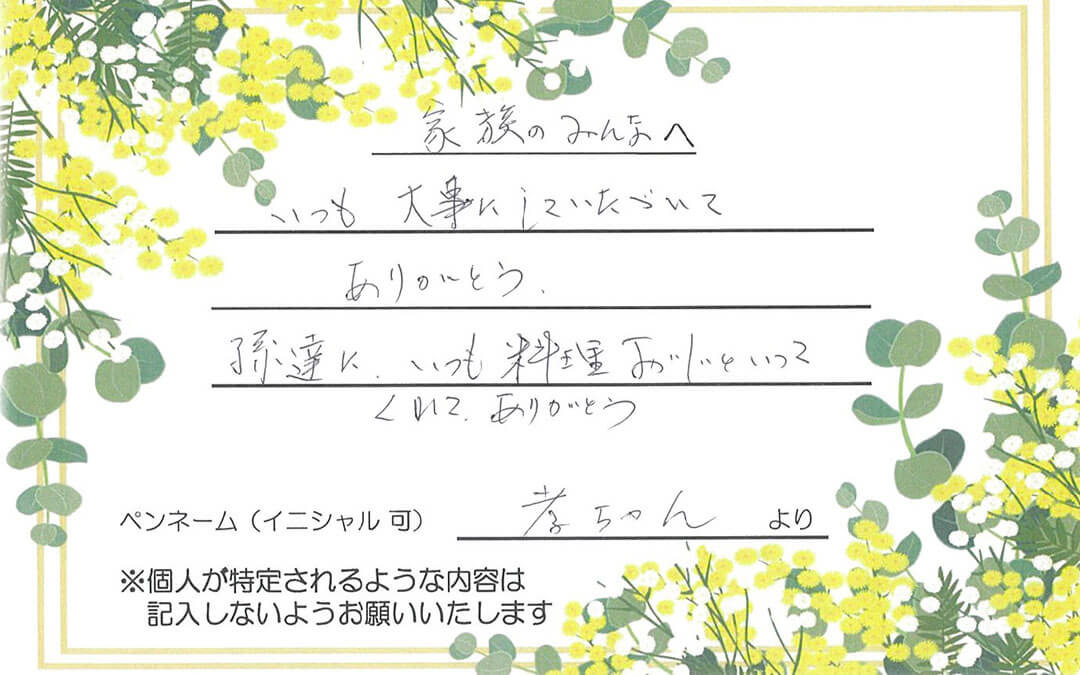 家族のみんなへ
いつも 大事にしていただいて
ありがとう.
孫達に、いつも料理おいしいといって
くれて、ありがとう
ペンネーム（イニシャル 可） 孝ちゃん より
※個人が特定されるような内容は
記入しないようお願いいたします